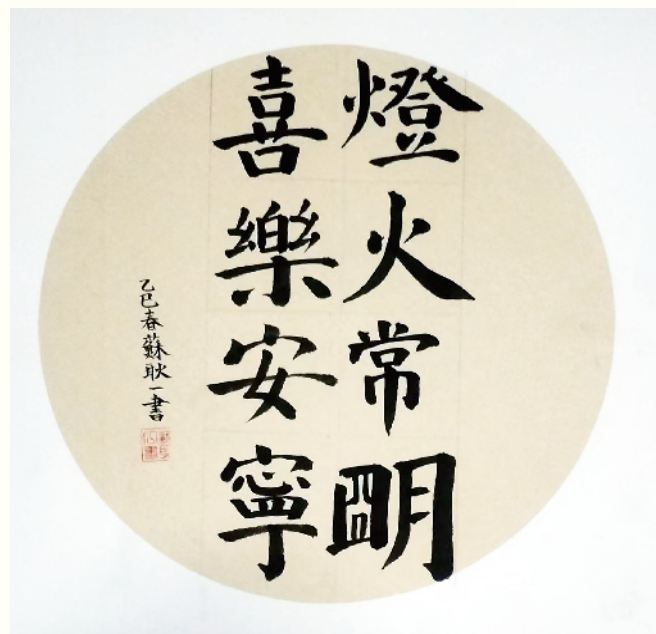 燈火常明
喜樂安寧
乙巳春蘇耿一書